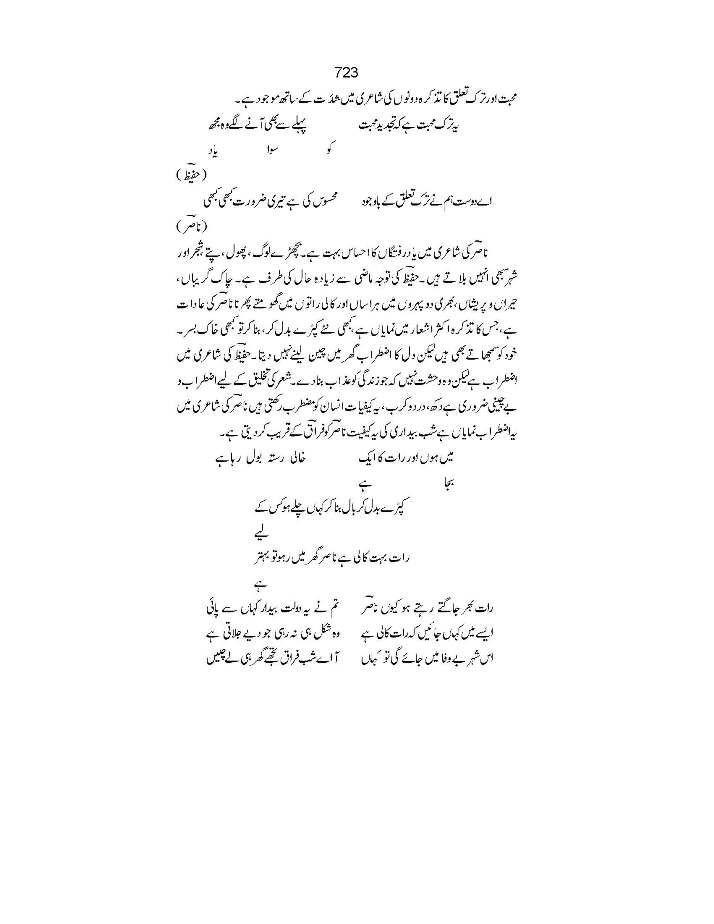 723
محبت اور ترک تعلق کا تذکرہ دونوں کی شاعری میں شدّت کے ساتھ موجود ہے۔
یہ ترک محبت ہے کہ تجدیدِ محبت پہلے سے بھی آنے لگے وہ مجھ
کو سوا یاد
(حفیظؔ)
اے دوست ہم نے ترک تعلق کے باوجود محسوس کی ہے تیری ضرورت کبھی کبھی
(ناصرؔ)
ناصرؔ کی شاعری میں یادِ رفتگاں کا احساس بہت ہے۔ بچھڑے لوگ، پھول، پتے، شجر اور
شہر سبھی انھیں بلاتے ہیں۔ حفیظؔ کی توجہ ماضی سے زیادہ حال کی طرف ہے۔ چاک گریباں،
حیران و پریشاں، ہجر کی دوپہروں میں ہراساں اور کالی راتوں میں گھومتے پھرنا ناصرؔ کی عادات
ہے، جس کا تذکرہ اکثر اشعار میں نمایاں ہے کبھی نئے کپڑے بدل کر، بنا کر تو کبھی خاک بسر۔
خود کو سمجھاتے بھی ہیں لیکن دل کا اضطراب گھر میں چین لینے نہیں دیتا۔ حفیظؔ کی شاعری میں
اضطراب ہے لیکن وہ وحشت نہیں کہ جو زندگی کو عذاب بنا دے۔ شعر کی تخلیق کے لیے اضطراب و
بے چینی ضروری ہے دکھ، درد و کرب، یہ کیفیات انسان کو مضطرب رکھتی ہیں ناصرؔ کی شاعری میں
یہ اضطراب نمایاں ہے شب بیداری کی یہ کیفیت ناصرؔ کو فراقؔ کے قریب کر دیتی ہے۔
میں ہوں اور رات کا ایک خالی رستہ بول رہا ہے
بجا ہے
کپڑے بدل کر بال بنا کر کہاں چلے ہو کس کے
لیے
رات بہت کالی ہے ناصر گھر میں رہو تو بہتر
ہے
رات بھر جاگتے رہتے ہو کیوں ناصرؔ تم نے یہ دولت بیدار کہاں سے پائی
ایسے میں کہاں جائیں کہ رات کالی ہے وہ شکل ہی نہ رہی جو دیے جلاتی ہے
اس شہر بے وفا میں جائے گی تو کہاں آ اے شب فراق تجھے گھر ہی لے چلیں